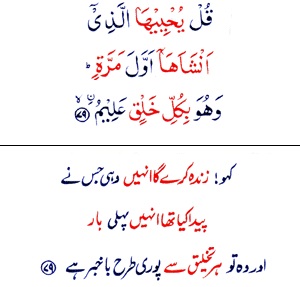 قُلْ يُحْيِيْهَا الَّذِيْۤ
اَنْشَاَهَاۤ اَوَّلَ مَرَّةٍ ؕ
وَهُوَ بِكُلِّ خَلْقٍ عَلِيْمُ ۨ ۙ ﴿۷۹﴾
کہو! زندہ کرے گا انہیں وہی جس نے
پیدا کیا تھا انہیں پہلی بار
اور وہ تو ہر تخلیق سے پوری طرح باخبر ہے ﴿۷۹﴾